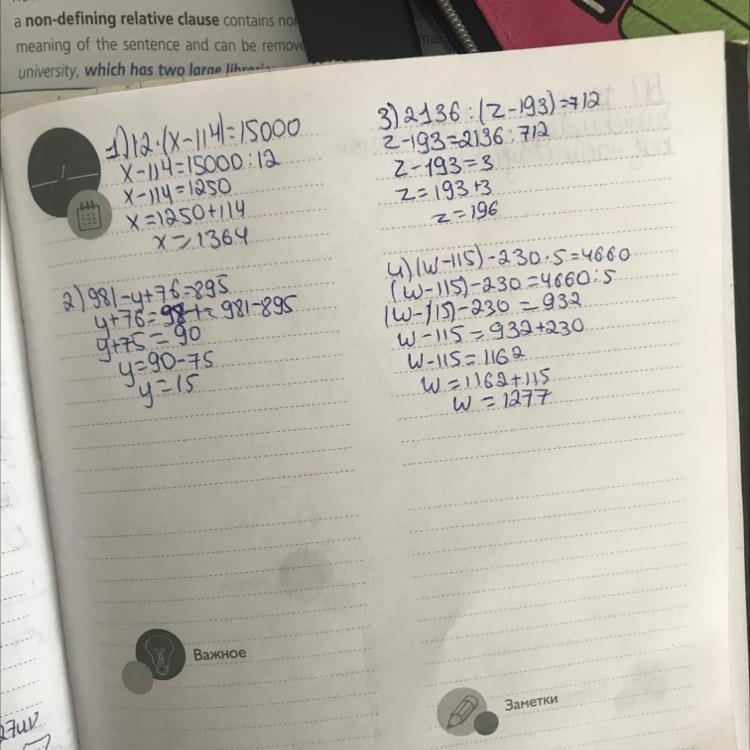 a non-defining relative clause contains
meaning of the sentence and can be
university, which has two large
1) 12·(x-114)=15000
x-114=15000:12
x-114=1250
x=1250+114
x=1364
2) 981-y+76=895
y+76=981= 981-895
y+75=90
y=90-75
y=15
3) 2136:(z-193)=712
z-193=2136:712
z-193=3
z=193+3
z=196
4) (w-115)-230·5=4660
(w-115)-230=4660:5
(w-115)-230=932
w-115=932+230
w-115=1162
w=1162+115
w=1277
Важное
Заметки